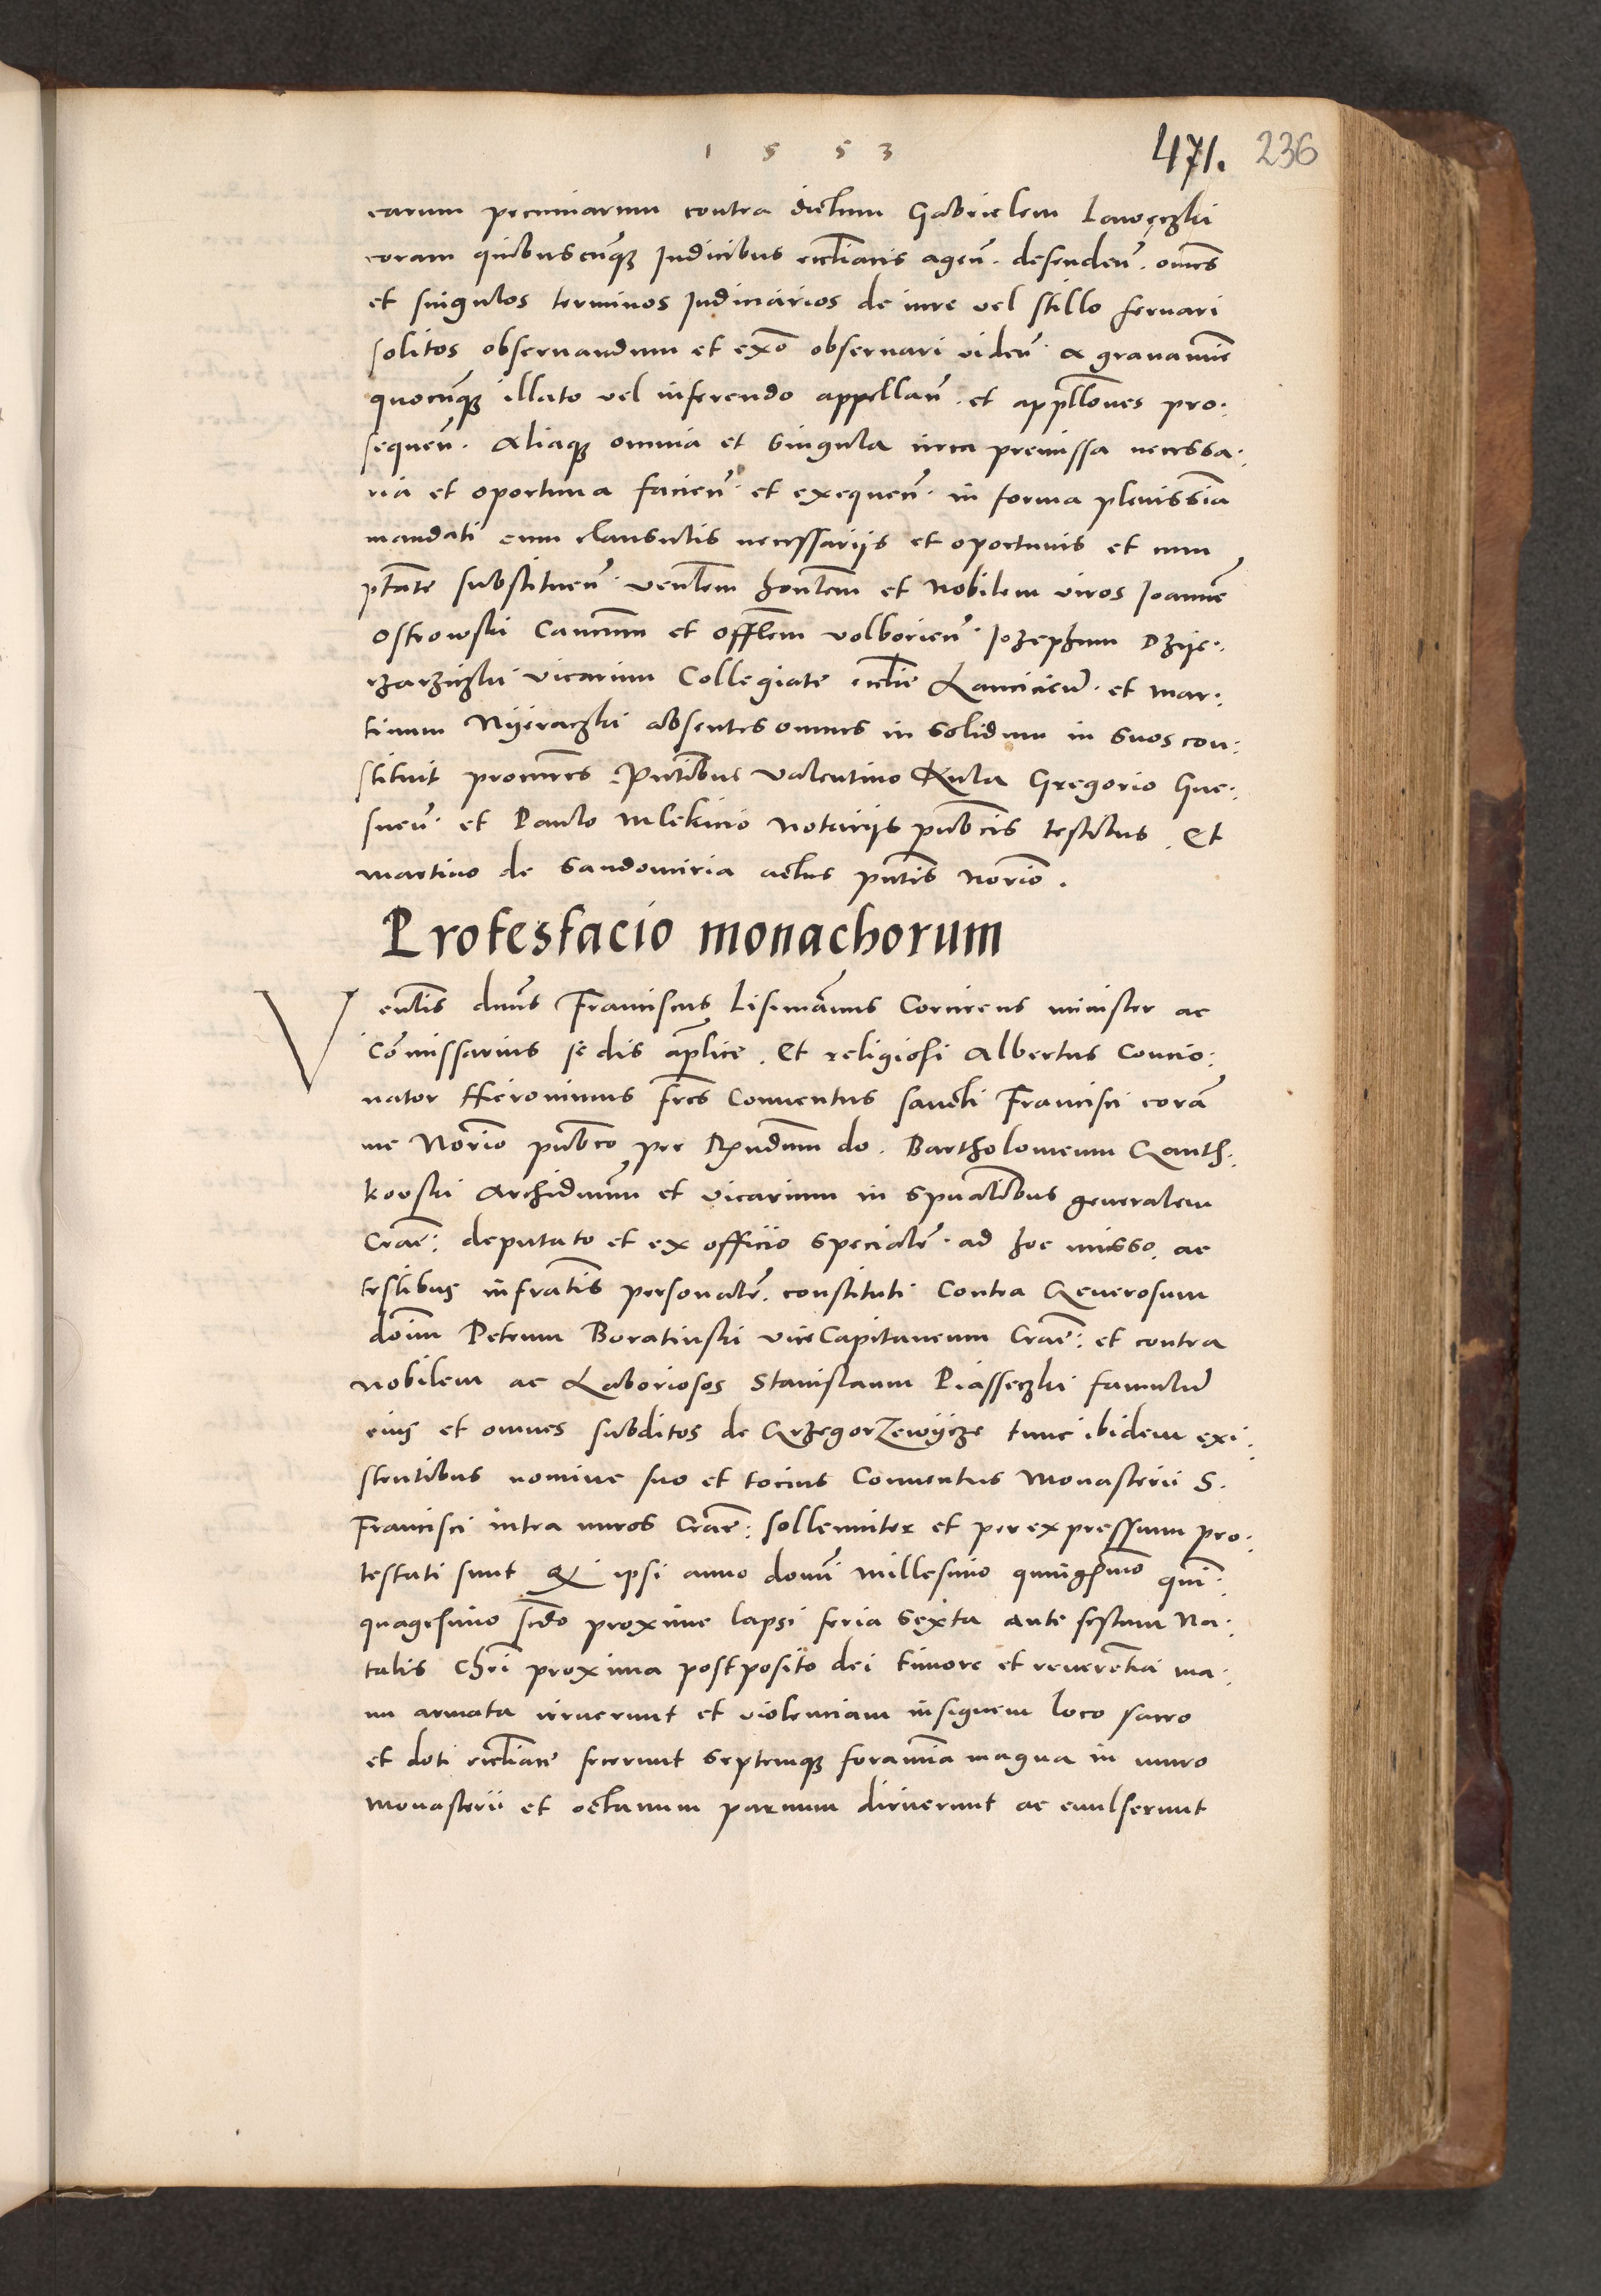 1 5 5 3 471. 236
earum pecuniarum contra dictum Gabrielem Lawęczki
coram quibuscũq₃ Iudicibus eccl̃iacis agen̄. defenden̄. om̃es
et singulos terminos Iudiciarios de iure vel stillo seruari
solitos obseruandum et ex̃o obseruari viden̄ a grauamĩe
quocũq₃ illato vel inferendo appellan̄. et app̃llões pro:
sequen̄. Aliaq₃ omnia et singula circa premissa necessa:
ria et oportuna facien̄ et exequen̄. in forma plenissĩa
mandati cum clausulis necessarijs et oportunis et cum
ptãte substituen̄. ven̄lem hon̄lem et Nobilem viros Ioannẽ
Ostrowski Canc̃um et off̃lem volborien̄. Iozephum Dzije:
rzazniczki vicarium Collegiate eccl̃ie Lancicien̄. et Mar:
tinum Nyeraczki absentes omnes in solidum in suos con:
stituit procur̃es. Pñtibus Valentino Kula Gregorio Gne:
snen̄. et Paulo Mlekicio Notarijs pub̃cis testibus. Et
Martino de Sandomiria actus pñtis Nor̃io.
Protestacio monachorum
Ven̄lis dñus Franciscus Lisimãnus Corcirens minister ac
Cõmissarius sedis ap̃lice. Et religiosi Albertus Concio:
nator Hieronimus fr̃es Conuentus sancti Francisci corã
me Nor̃io pub̃co per R̃ndum do. Bartholomeum Ganth:
kowski Archid̃num et vicarium in sp̃ualibus generalem
Crac̃: deputato et ex officio specialr̃. ad hoc misso. ac
testibus infrãtis personalr̃. constituti Contra Generosum
dom̃ Petrum Boratinski viceCapitaneum Crac̃: et contra
Nobilem ac Laboriosos Stanislaum Piasseczki famulũ
eius et omnes subditos de Grzegorzewijcze tunc ibidem exi:
stentibus nomine suo et tocius Conuentus Monasterii S.
Francisci intra muros Crac̃: sollenniter et per expressum pro:
testati sunt Q ipsi anno dom̃ millesimo quingẽmo quin:
quagesimo sc̃do proxime lapsi feria sexta ante festum Na:
talis Chr̃i proxima postposito dei timore et reuerẽtia ma:
nu armata irruerunt et violenciam insignem loco sacro
et doti eccl̃iace fecerunt septemq₃ foramĩa magna in muro
Monasterii et octauum paruum diruerunt ac euulserunt